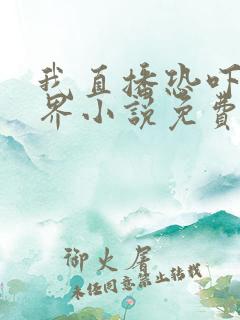 我直播恐吓
界小說免費
御火屠
未经同意禁止转载